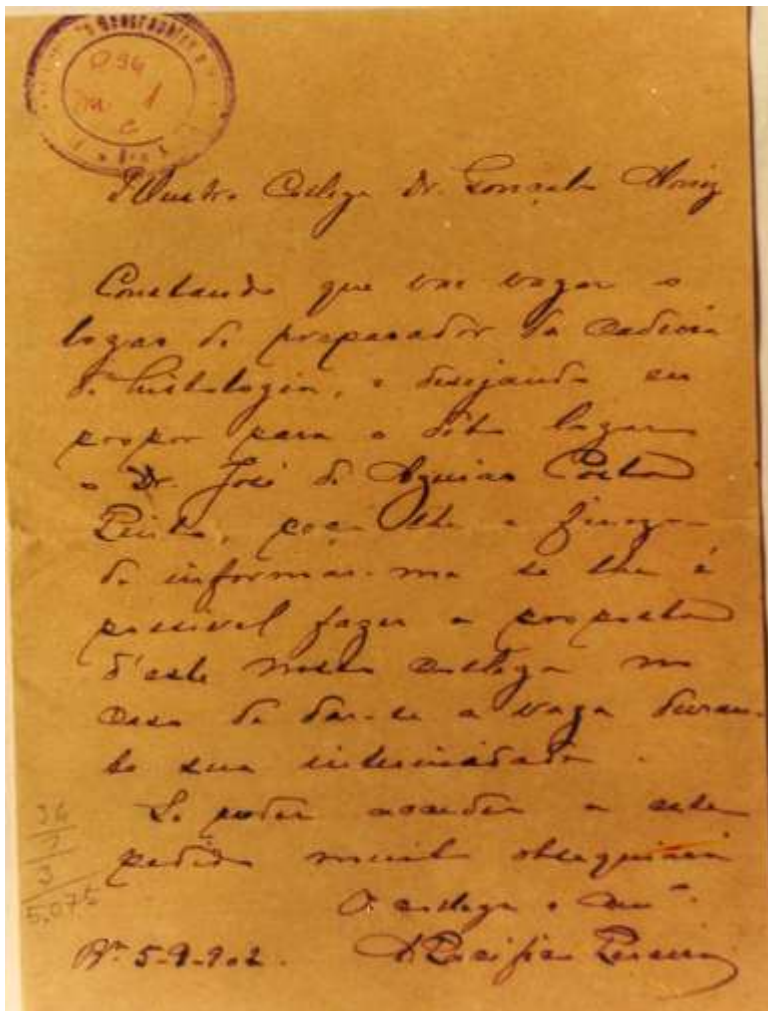 Illustre Collega Dr. Gonçalo Moniz
Constando que vae vagar o
logar de preparador da Cadeira
de histologia, e desejando eu
propor para o dito logar
o Dr. José de Aguiar Costa
Pinto, peço lhe a fineza
de informar-me se lhe é
possivel fazer a proposta
d'este nosso collega no
caso de dar-se a vaga duran-
te sua interinidade.
Se poder acceder a este
pedido muito obsequiará
O collega e am.º
A Pacifico Pereira
Bª 5-9-902.
36
3
5,075